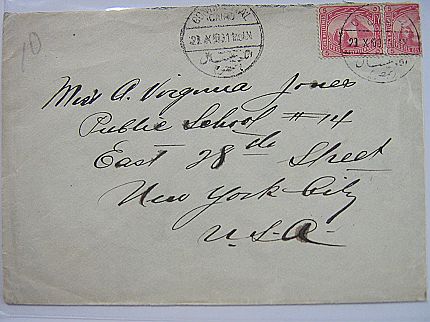 10
CAIRO
Miss A. Virginia Jones
Public School #14
East 28th Street
New York City
U.S.A.